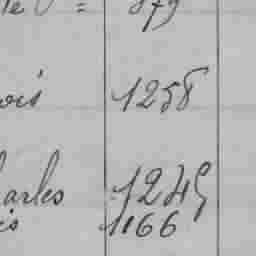 879
ois 1258
arles 1245
is 1166